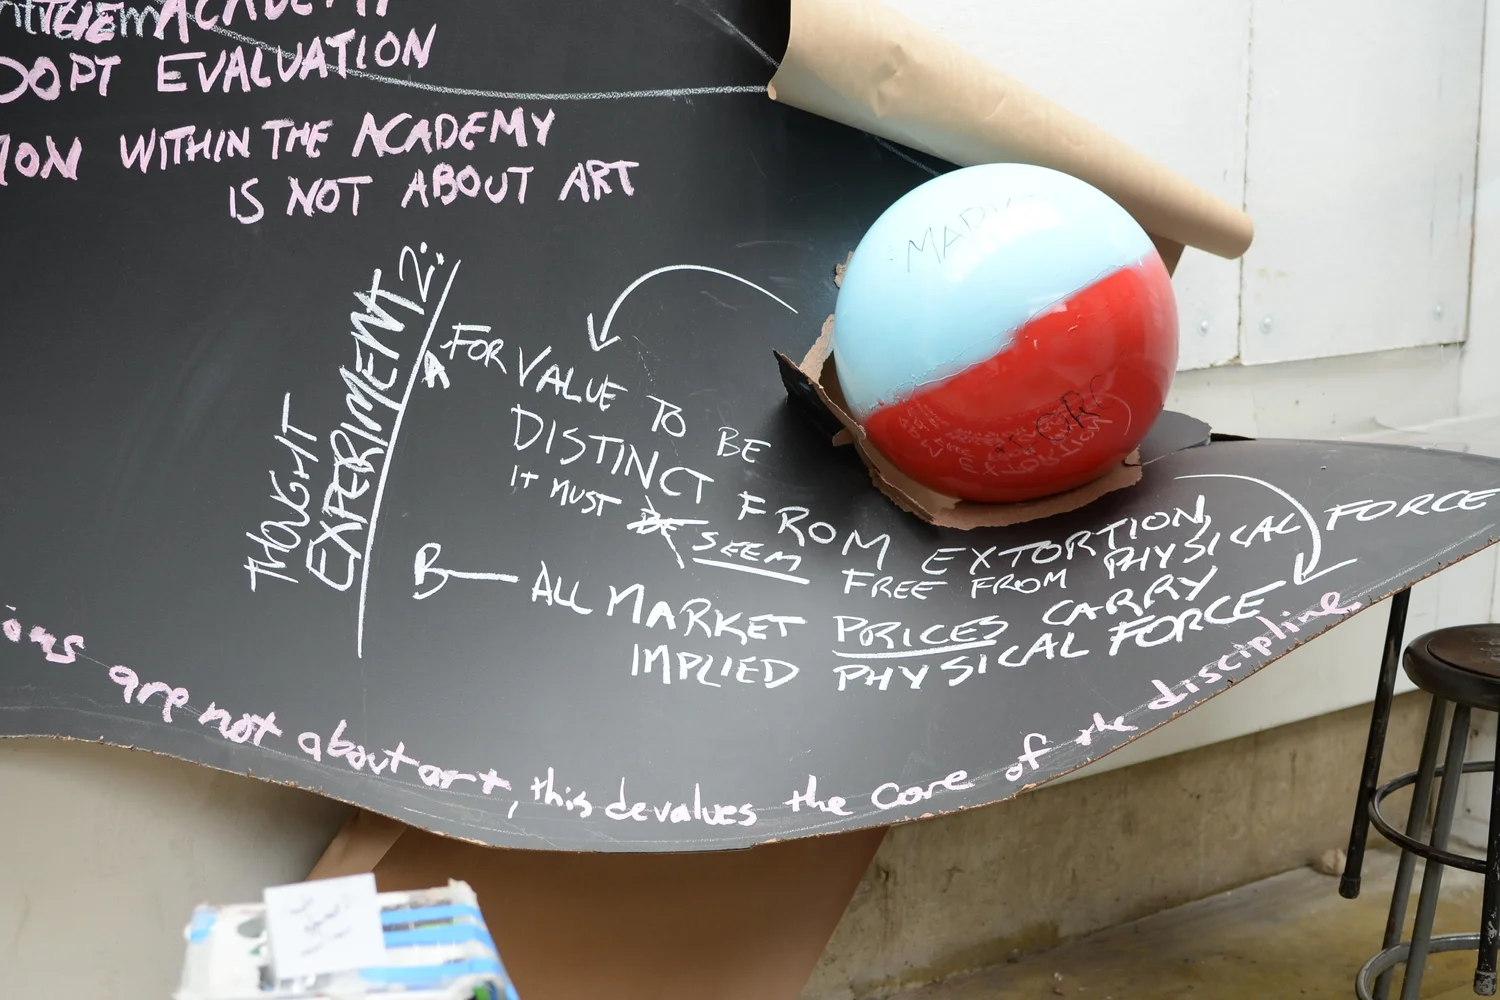 THE ACADEMY
DOPT EVALUATION
ION WITHIN THE ACADEMY
IS NOT ABOUT ART
THOUGHT
EXPERIMENT 2:
A FOR VALUE TO BE
DISTINCT FROM EXTORTION,
IT MUST BE SEEM FREE FROM PHYSICAL FORCE
B— ALL MARKET PRICES CARRY
IMPLIED PHYSICAL FORCE
ions are not about art, this devalues the core of the discipline